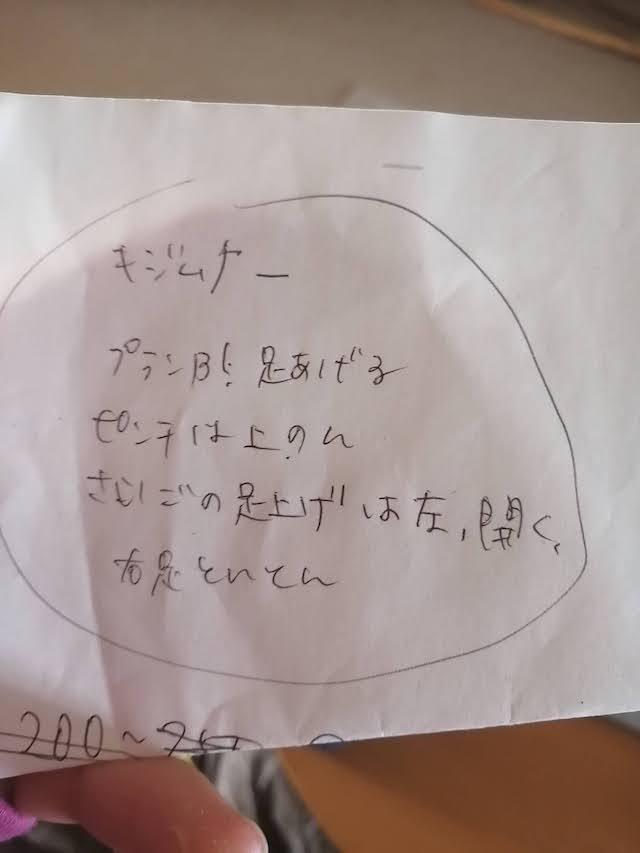 キジムナー
プランB! 足あげる
ピンチは上の人
さいごの足上げは左、開く、
右足
200~